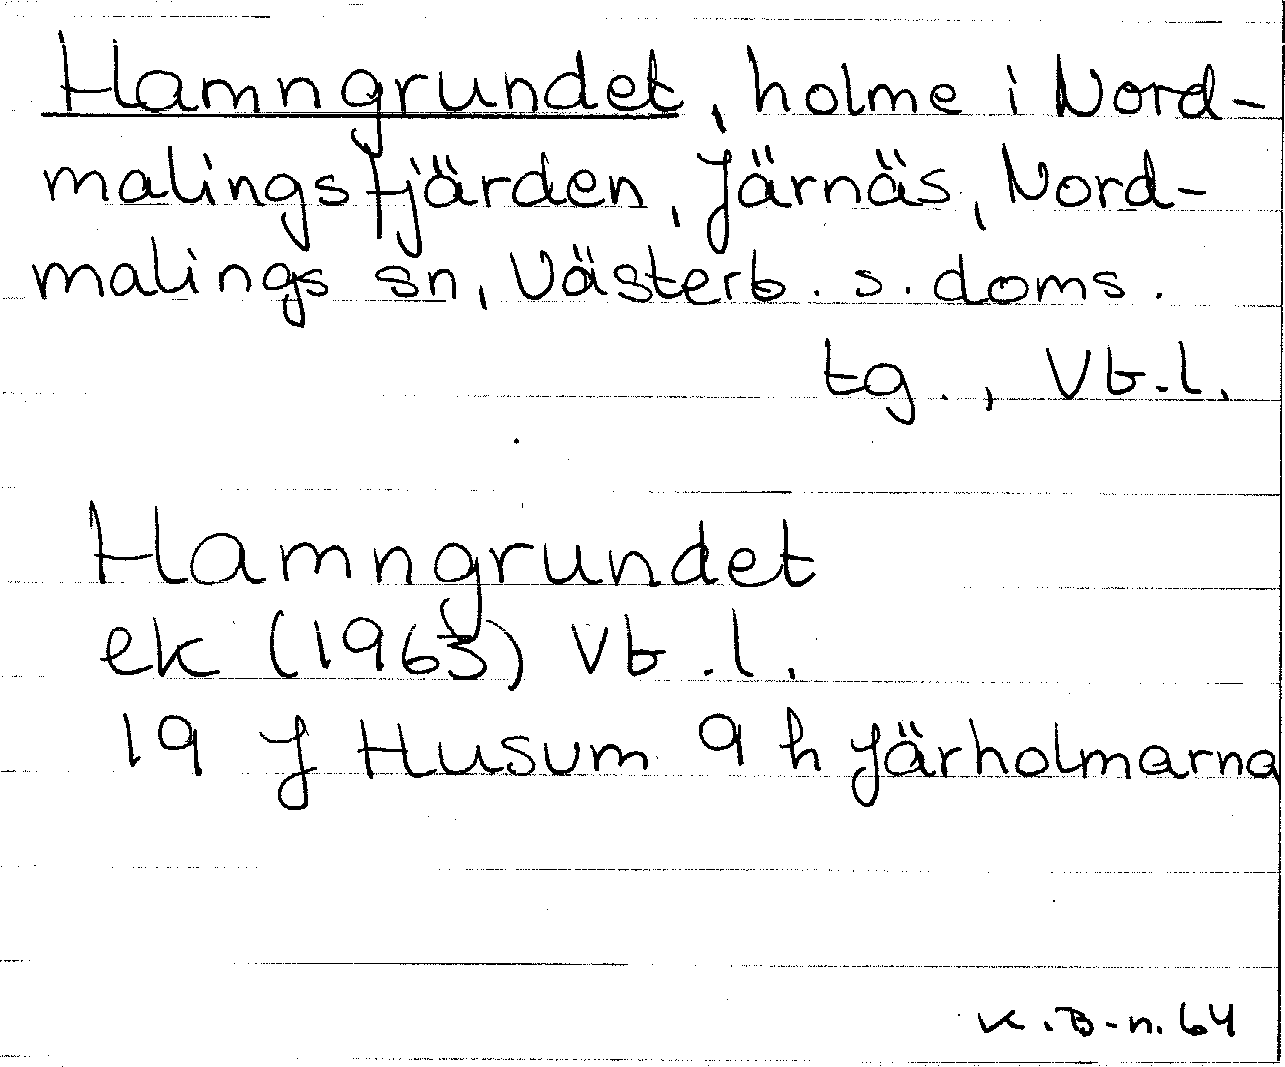 Hamngrundet, holme i Nord-
malingsfjärden, Järnäs, Nord-
malings sn, Västerb. s. doms.
tg., Vb.l.
Hamngrundet
ek (1963) Vb.l.
19 J Husum 9 h Järholmarna
K.B-n. 64